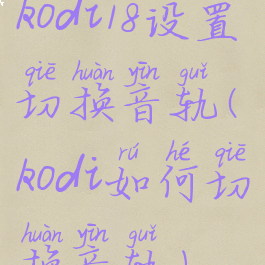 kodi18设置
qiē huàn yīn guǐ
切换音轨(
rú hé qiē
kodi如何切
huàn yīn guǐ
换音轨)